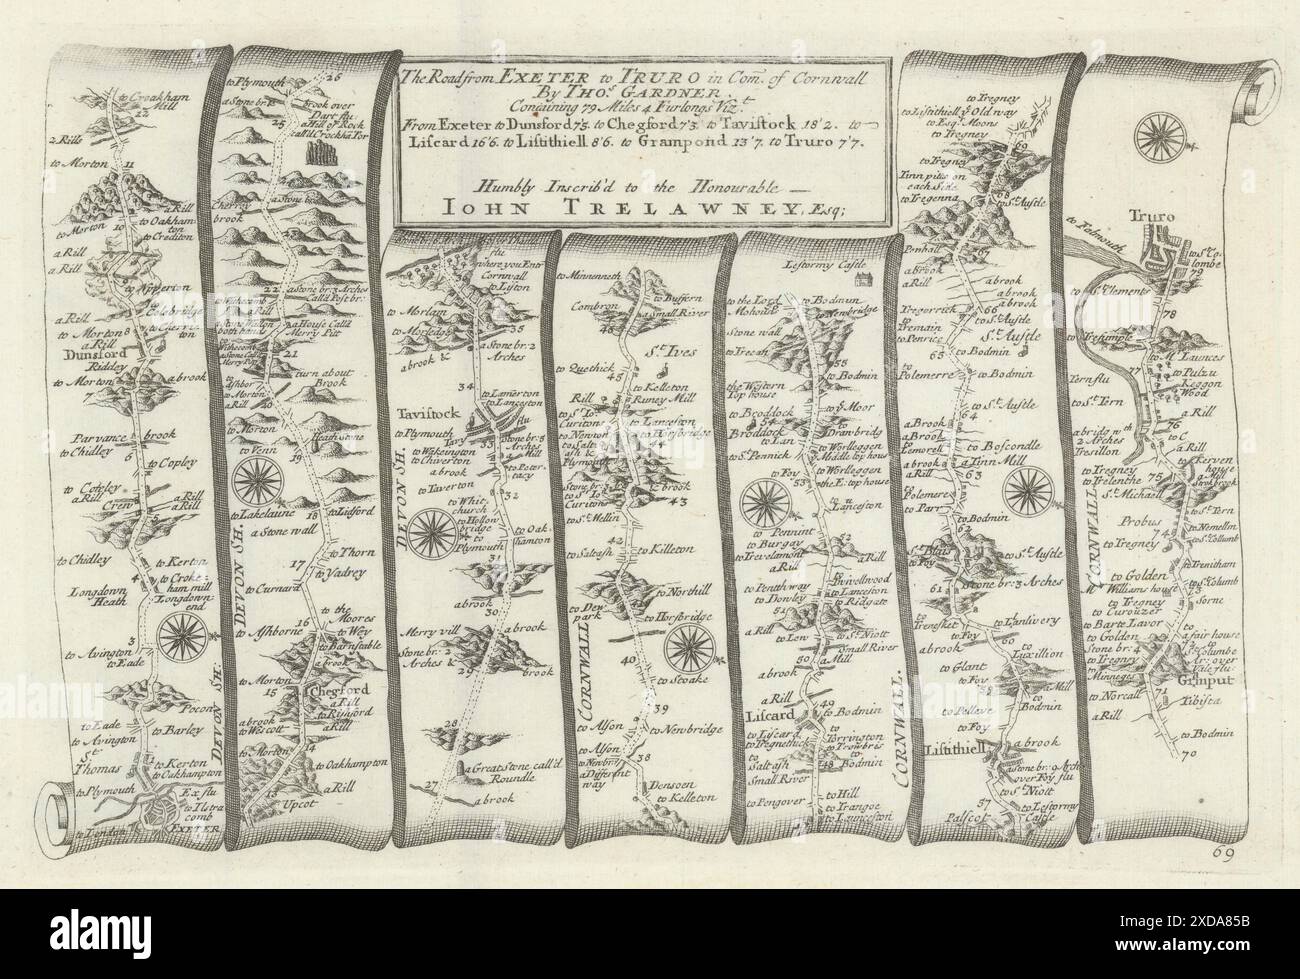 The Road from EXETER to TRURO in Com. of Cornwall
By THO.s GARDNER.
Containing 79 Miles 4 Furlongs Viz.t
From Exeter to Dunsford 7'5. to Chegford 7'3. to Tavistock 18'2. to
Liscard 16'6. to Listithiell 8'6. to Grampond 13'7. to Truro 7'7.
Humbly Inscrib'd to the Honourable
IOHN TRELAWNEY, Esq;
to Croakham
Mill
12
2 Rills
to Morton
11
a Rill
to Morton
10
to Oakham
ton
to Crediton
a Rill
a Rill
to Apperton
9
a Rill
to Morton 8
a Rill
Dunsford
Ridley
to Morton
7
a brook
Parvance
brook
to Chidley
6
to Copley
to Coteley
a Rill
a Rill
a Rill
5
to Chidley
to Kerton
4
to Croke=
ham mill
Longdown
Heath
Longdown
end
3
to Avington
to Eade
Pocon
to Eade
to Barley
to Avington
St.
Thomas
1
to Kerton
to Oakhampton
to Plymouth
Ex flu
to London
EXETER
DEVON SH.
to Plymouth
26
a Stone br.
brook over
Dart flu
a Hill of Rock
call'd Crockha Tor
25
Cherry
brook
a Stone br.
22
a Stone br. 3 Arches
a House Call'd
Merry Pit
21
turn about
Brook
to Morton
a Rill
to Morton
Heath stone
to Venn
19
to Lakelaune
18
to Lidford
a Stone wall
to Thorn
17
to Yadrey
to Curnard
16
to the
Moores
to Ashborne
to Wey
to Barnstable
a brook
to Morton
15
Chegford
a Rill
a Rill
a brook
to Wescott
14
to Morton
to Oakhampton
a Rill
13
Upcot
DEVON SH.
flu
where you Ent.
Cornwall
to Lifton
to Morlam
35
a Stone br. 2
Arches
a brook &
34
to Lamerton
to Lanceston
Tavistock
flu
to Plymouth
Tavy
33
Stone br. 3
Arches
a Mill
to Chiverton
a brook
to Peter
tavy
to Taverton
32
to Whit
church
to Hollow
bridge
to
Plymouth
to Oak
hamton
31
a brook
30
Merry vill
a brook
Stone br. 2
Arches &
29
a brook
28
27
a Great Stone call'd
Roundle
a brook
DEVON SH.
to Minnenneth
Combron
to Buffern
a Small River
46
St. Ives
to Quethick
45
to Kelleton
Rill
Runey Mill
to Lanceston
to Horsbridge
44
a brook
43
to St. Mellin
42
to Saltash
to Killeton
to Northill
to Deu
park
to Horsbridge
40
to Stoake
39
to Alson
to Newbridge
to Alson
38
a Different
way
Densoen
to Kelleton
CORNWALL
Lestormy Castle
to the Lord
Mohouns
to Bodmun
to Newbridge
Stone wall
to Trecah
55
to Bodmin
the Western
Top house
to Broddock
to ye Moor
54
Broddock
to Lan
to Drawbridg
to St. Pennick
to Worlleggen
Middle top hous
to Foy
53
to Worlleggen
the E. top house
to
Lanceston
to Pennint
52
to Burgay
to Trevelamont
a Rill
a Rill
to Penithway
to Dowley
Treivellwood
to Lanceston
to Ridgate
51
a Rill
to Lew
to St. Niott
Small River
50
a Mill
a brook
a brook
a Rill
49
Liscard
to Bodmin
to Liscard
to Torrington
to Tregnethick
to Trowbris
to
Saltash
48
to
Bodmin
Small River
to Pengover
to Hill
to Trangoe
to Launceston
CORNWALL.
to Tregney
to Listithiell ye Old way
to Esq.r Moons
to Tregney
69
to Tregney
Tinn pitts on
each Side
to Tregenna
68
to St. Austle
Penhall
67
a brook
a Rill
a brook
a brook
a brook
Tregorrick
66
to St. Austle
Tremain
to Penrice
St. Austle
65
to Bodmin
to Polemere
to Bodmin
64
to St. Austle
a Brook
a Brook
to Lemorell
to Boscondle
a brook
a Rill
a Tinn Mill
63
Polemere
to Par
to Bodmin
62
St. Blais
to St. Austle
to Foy
Stone br. 3 Arches
61
to Trenesket
to Lanlivery
to Foy
60
a brook
to Luxillion
to Glant
to Foy
59
a Mill
to Pelleve
to
Bodmin
to Foy
Listithiell
a brook
a Stone br. 9 Arch.
over Foy flu
to St. Niott
57
to Lestormy
Castle
Palscot
to Falmouth
Truro
to St. Co
lombe
79
to St. Clements
78
Trehimple
to Mt. Launces
77
to Pulzu
Keggon
Wood
Tern flu
to St. Tern
a Rill
a bridg wth
2 Arches
76
to C
Tresillon
a Rill
to Tregney
to Kerven
house
to Trelenthe
75
a Mill
St. Michaell
to St. Tern
Probus
to Nemellin
to Tregney
74
to St. Collumb
to Trenitham
to Golden
to St. Columb
Mr Williams house
73
to Tregney
Sorne
to Curouzer
to Barte Lavor
to Golden
to
a fair house
Stone br. 4
to St.
Columbe
to Tregney
Ar. over
Vale flu
to Minneges
Gramput
71
to Norcall
Tibista
a Rill
to Bodmin
70
CORNWALL
69
alamy
Image ID: 2XDA85B
www.alamy.com